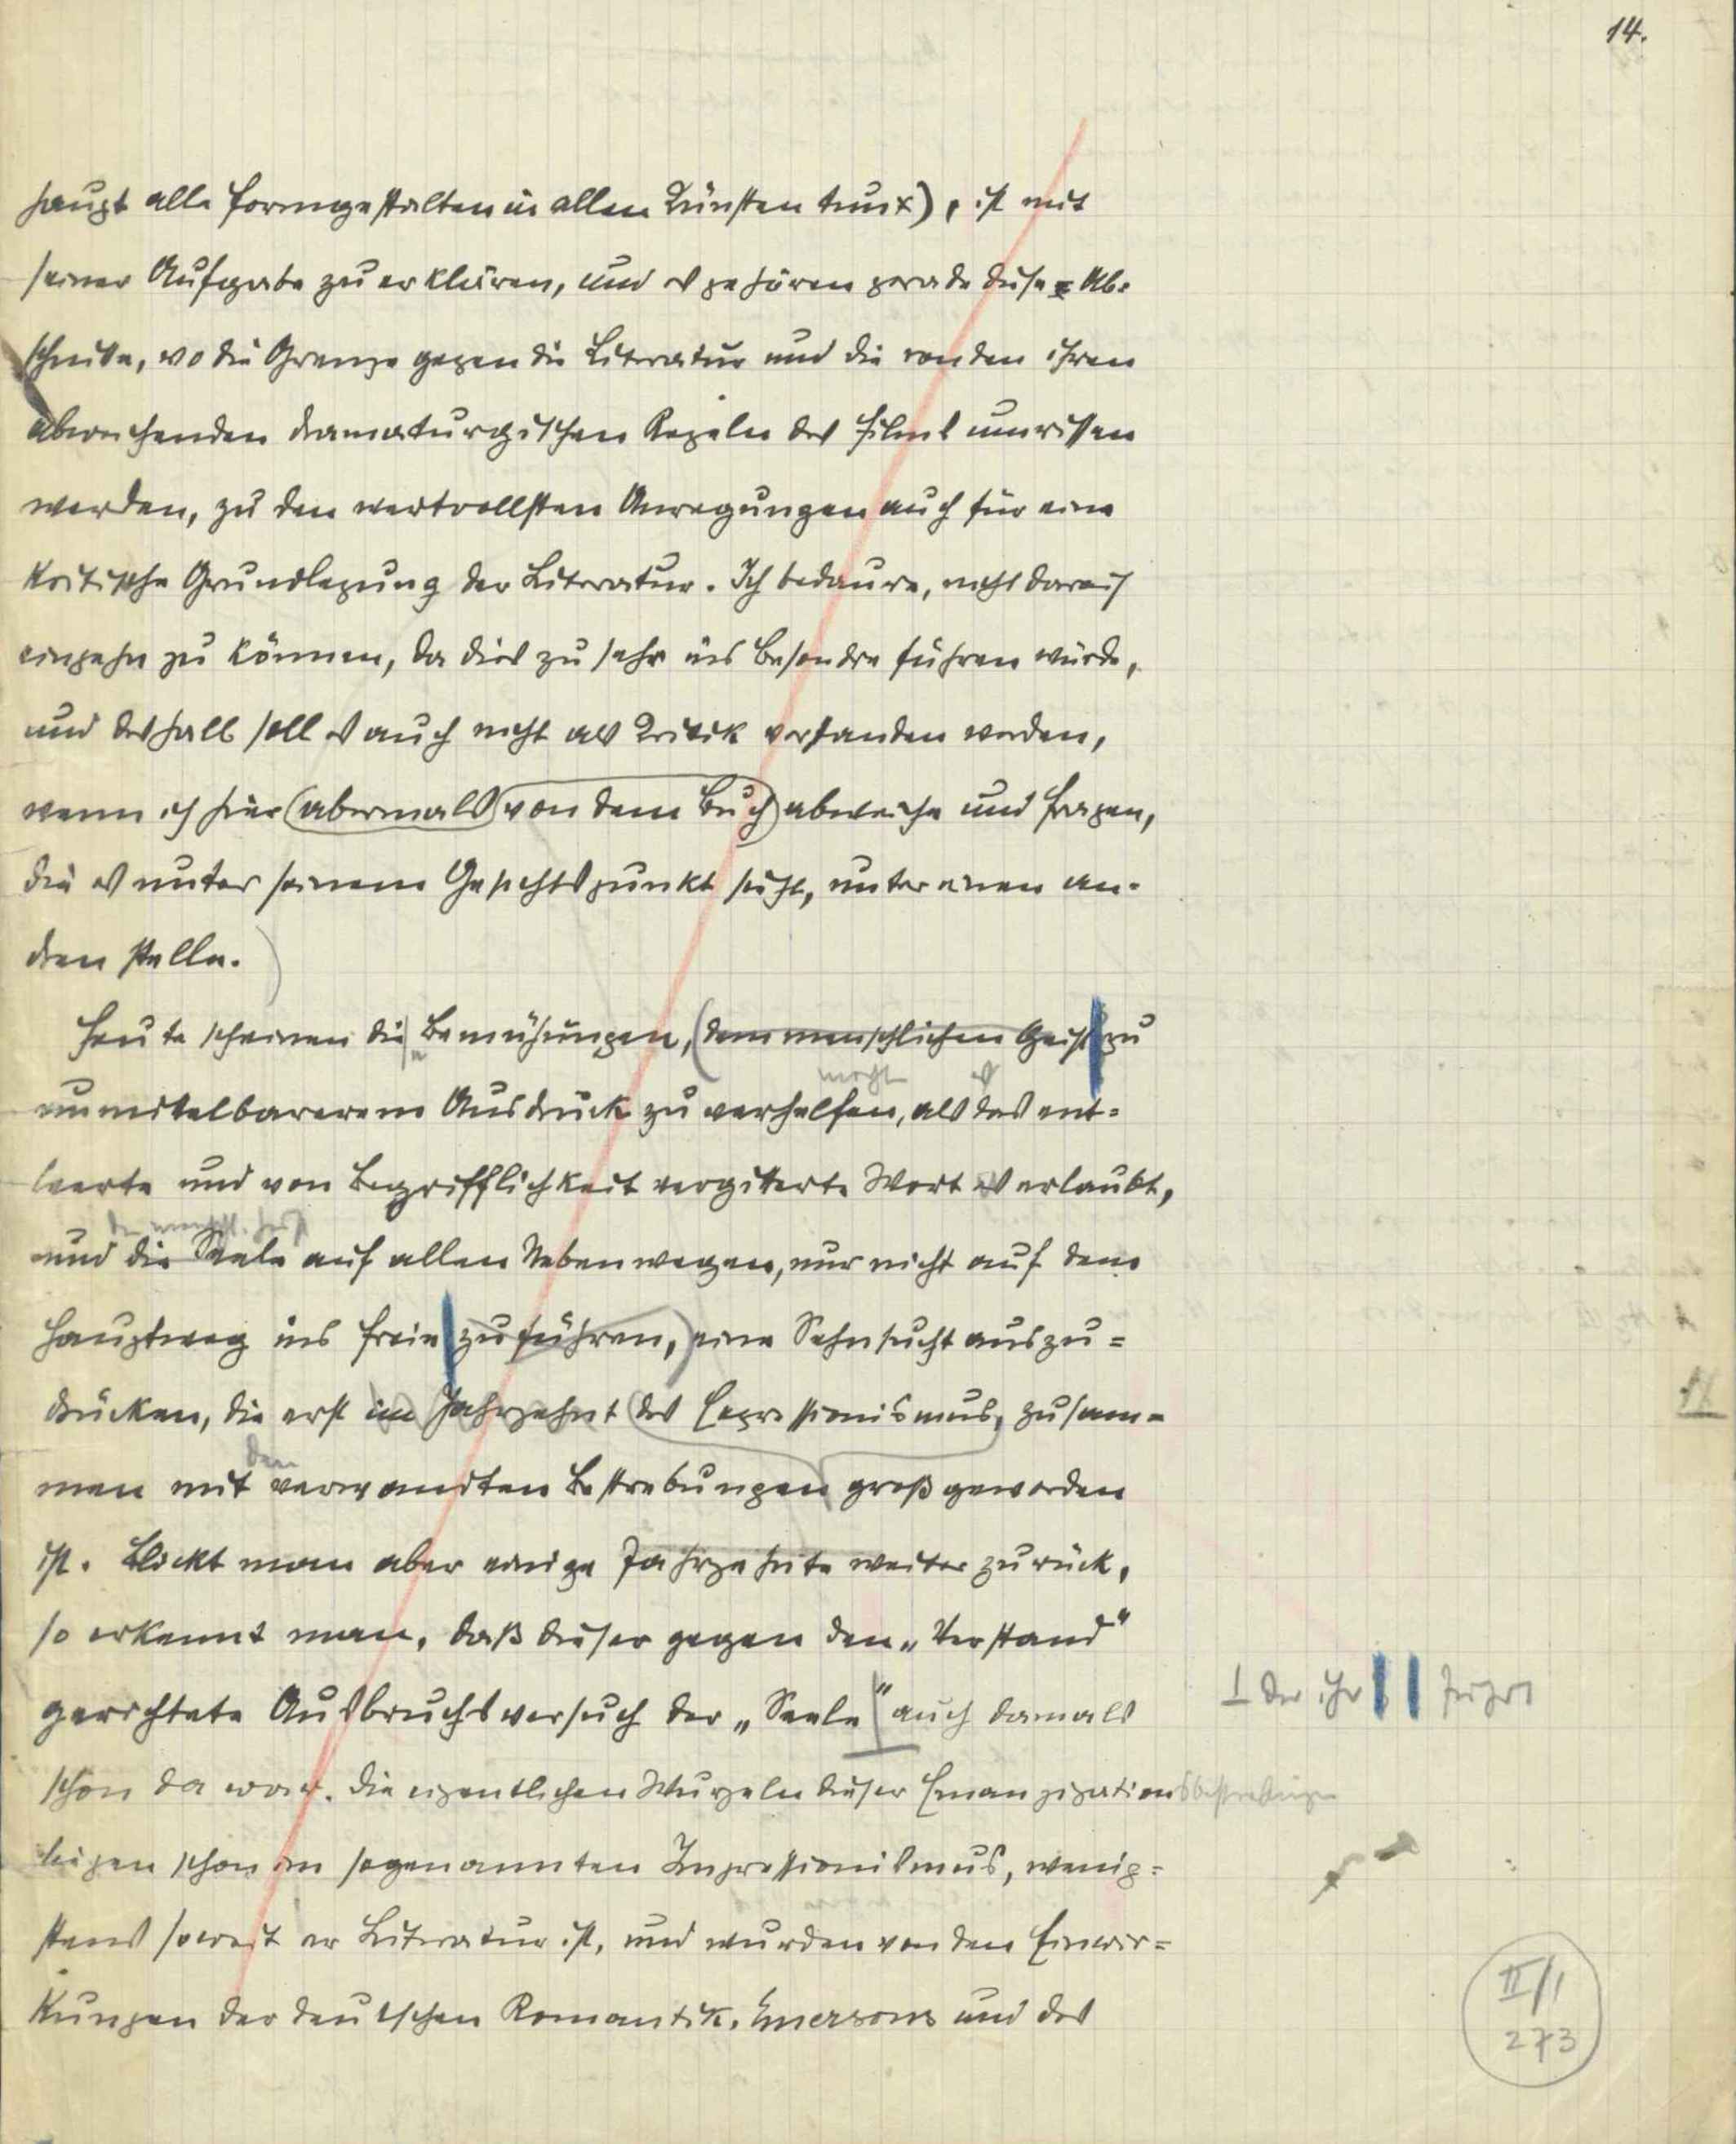 14.
haupt alle Formgestalten in allen Künsten tun x), ist mit
seiner Aufgabe zu erklären, und es gehören gerade diese Ab-
schnitte, wo die Grenze gegen die Literatur und die von den ihren
abweichenden dramaturgischen Regeln des Films umrissen
werden, zu den wertvollsten Anregungen auch für eine
kritische Grundlegung der Literatur. Ich bedaure, nicht darauf
eingehn zu können, da dies zu sehr ins Besondre führen würde,
und deshalb soll es auch nicht als Kritik verstanden werden,
wenn ich hier abermals von dem Buch abweiche und Fragen,
die es unter seinem Gesichtspunkt sieht, unter einen an-
dren stelle.
Heute scheinen die Bemühungen, (dem menschlichen Geist zu
mehr es
unmittelbarerem Ausdruck zu verhelfen, als das ent-
leerte und von Begrifflichkeit vergitterte Wort es erlaubt,
den menschl. Geist
und die Seele auf allen Nebenwegen, nur nicht auf dem
Hauptweg ins Freie zu führen,) eine Sehnsucht auszu-
drücken, die erst im Jahrzehnt (des Expressionismus, zusam-
den
men mit verwandten Bestrebungen groß geworden
ist. Blickt man aber einige Jahrzehnte weiter zurück,
so erkennt man, daß dieser gegen den „Verstand"
gerichtete Ausbruchsversuch der „Seele" auch damals
⊥ der ihr
schon da war. Die eigentlichen Wurzeln dieser Emanzipationsbestrebungen
liegen schon im sogenannten Impressionismus, wenig-
stens soweit er Literatur ist, und wurden von den Einwir-
kungen der deutschen Romantik, Emersons und des
II/1
273